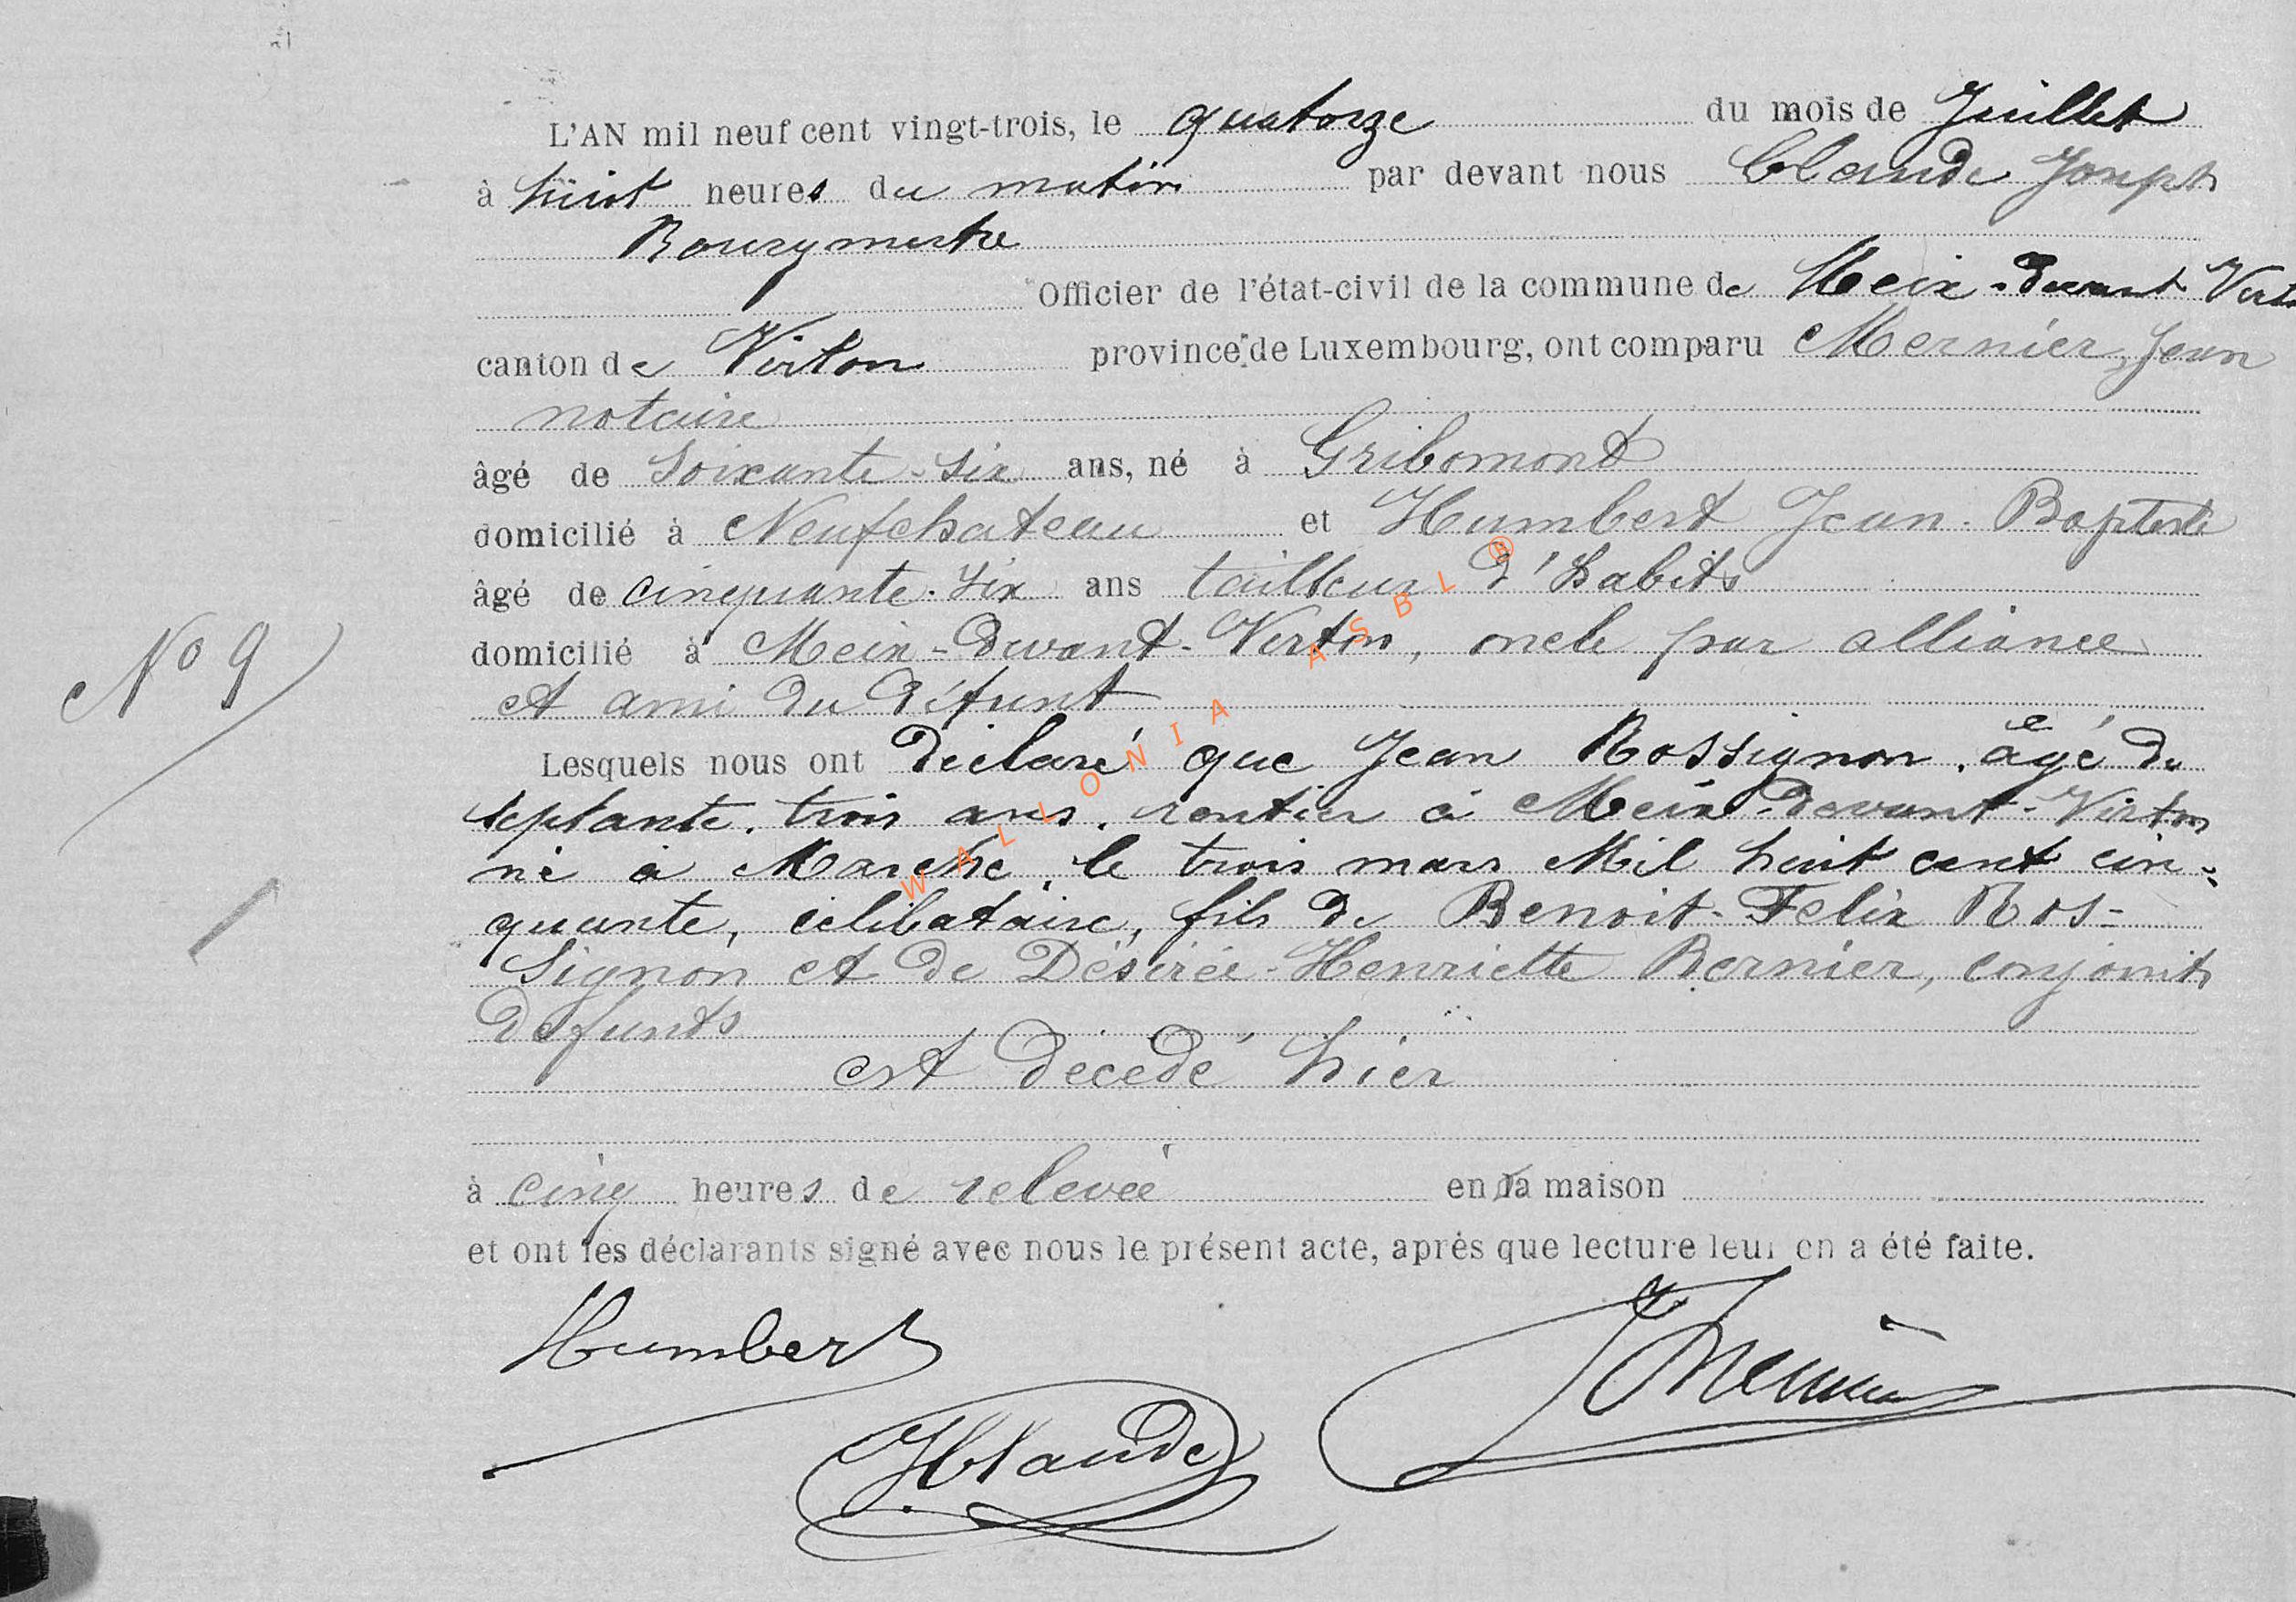 L'AN mil neuf cent vingt-trois, le quatorze du mois de Juillet
à huit heures du matin par devant nous Claude Joseph
Bourgmestre
Officier de l'état-civil de la commune de Meix-devant-Virt
canton de Virton province de Luxembourg, ont comparu Mernier, Jean
notaire
âgé de soixante-six ans, né à Gribomont
domicilié à Neufchateau et Humbert Jean-Baptiste
âgé de cinquante-six ans tailleur d'habits
domicilié à Meix-devant-Virton, oncle par alliance
et ami du défunt
No 9
Lesquels nous ont déclaré que Jean Rossignon, âgé de
septante-trois ans, rentier à Meix-devant-Virton
né à Marche, le trois mars Mil huit cent cin-
quante, célibataire, fils de Benoit-Felix Ros-
signon et de Désirée-Henriette Bernier, conjoints
défunts
est décédé hier
à cinq heures de relevée en sa maison
et ont les déclarants signé avec nous le présent acte, après que lecture leur en a été faite.
Humbert
JMernier
JClaude
WALLONIA ASBL ®